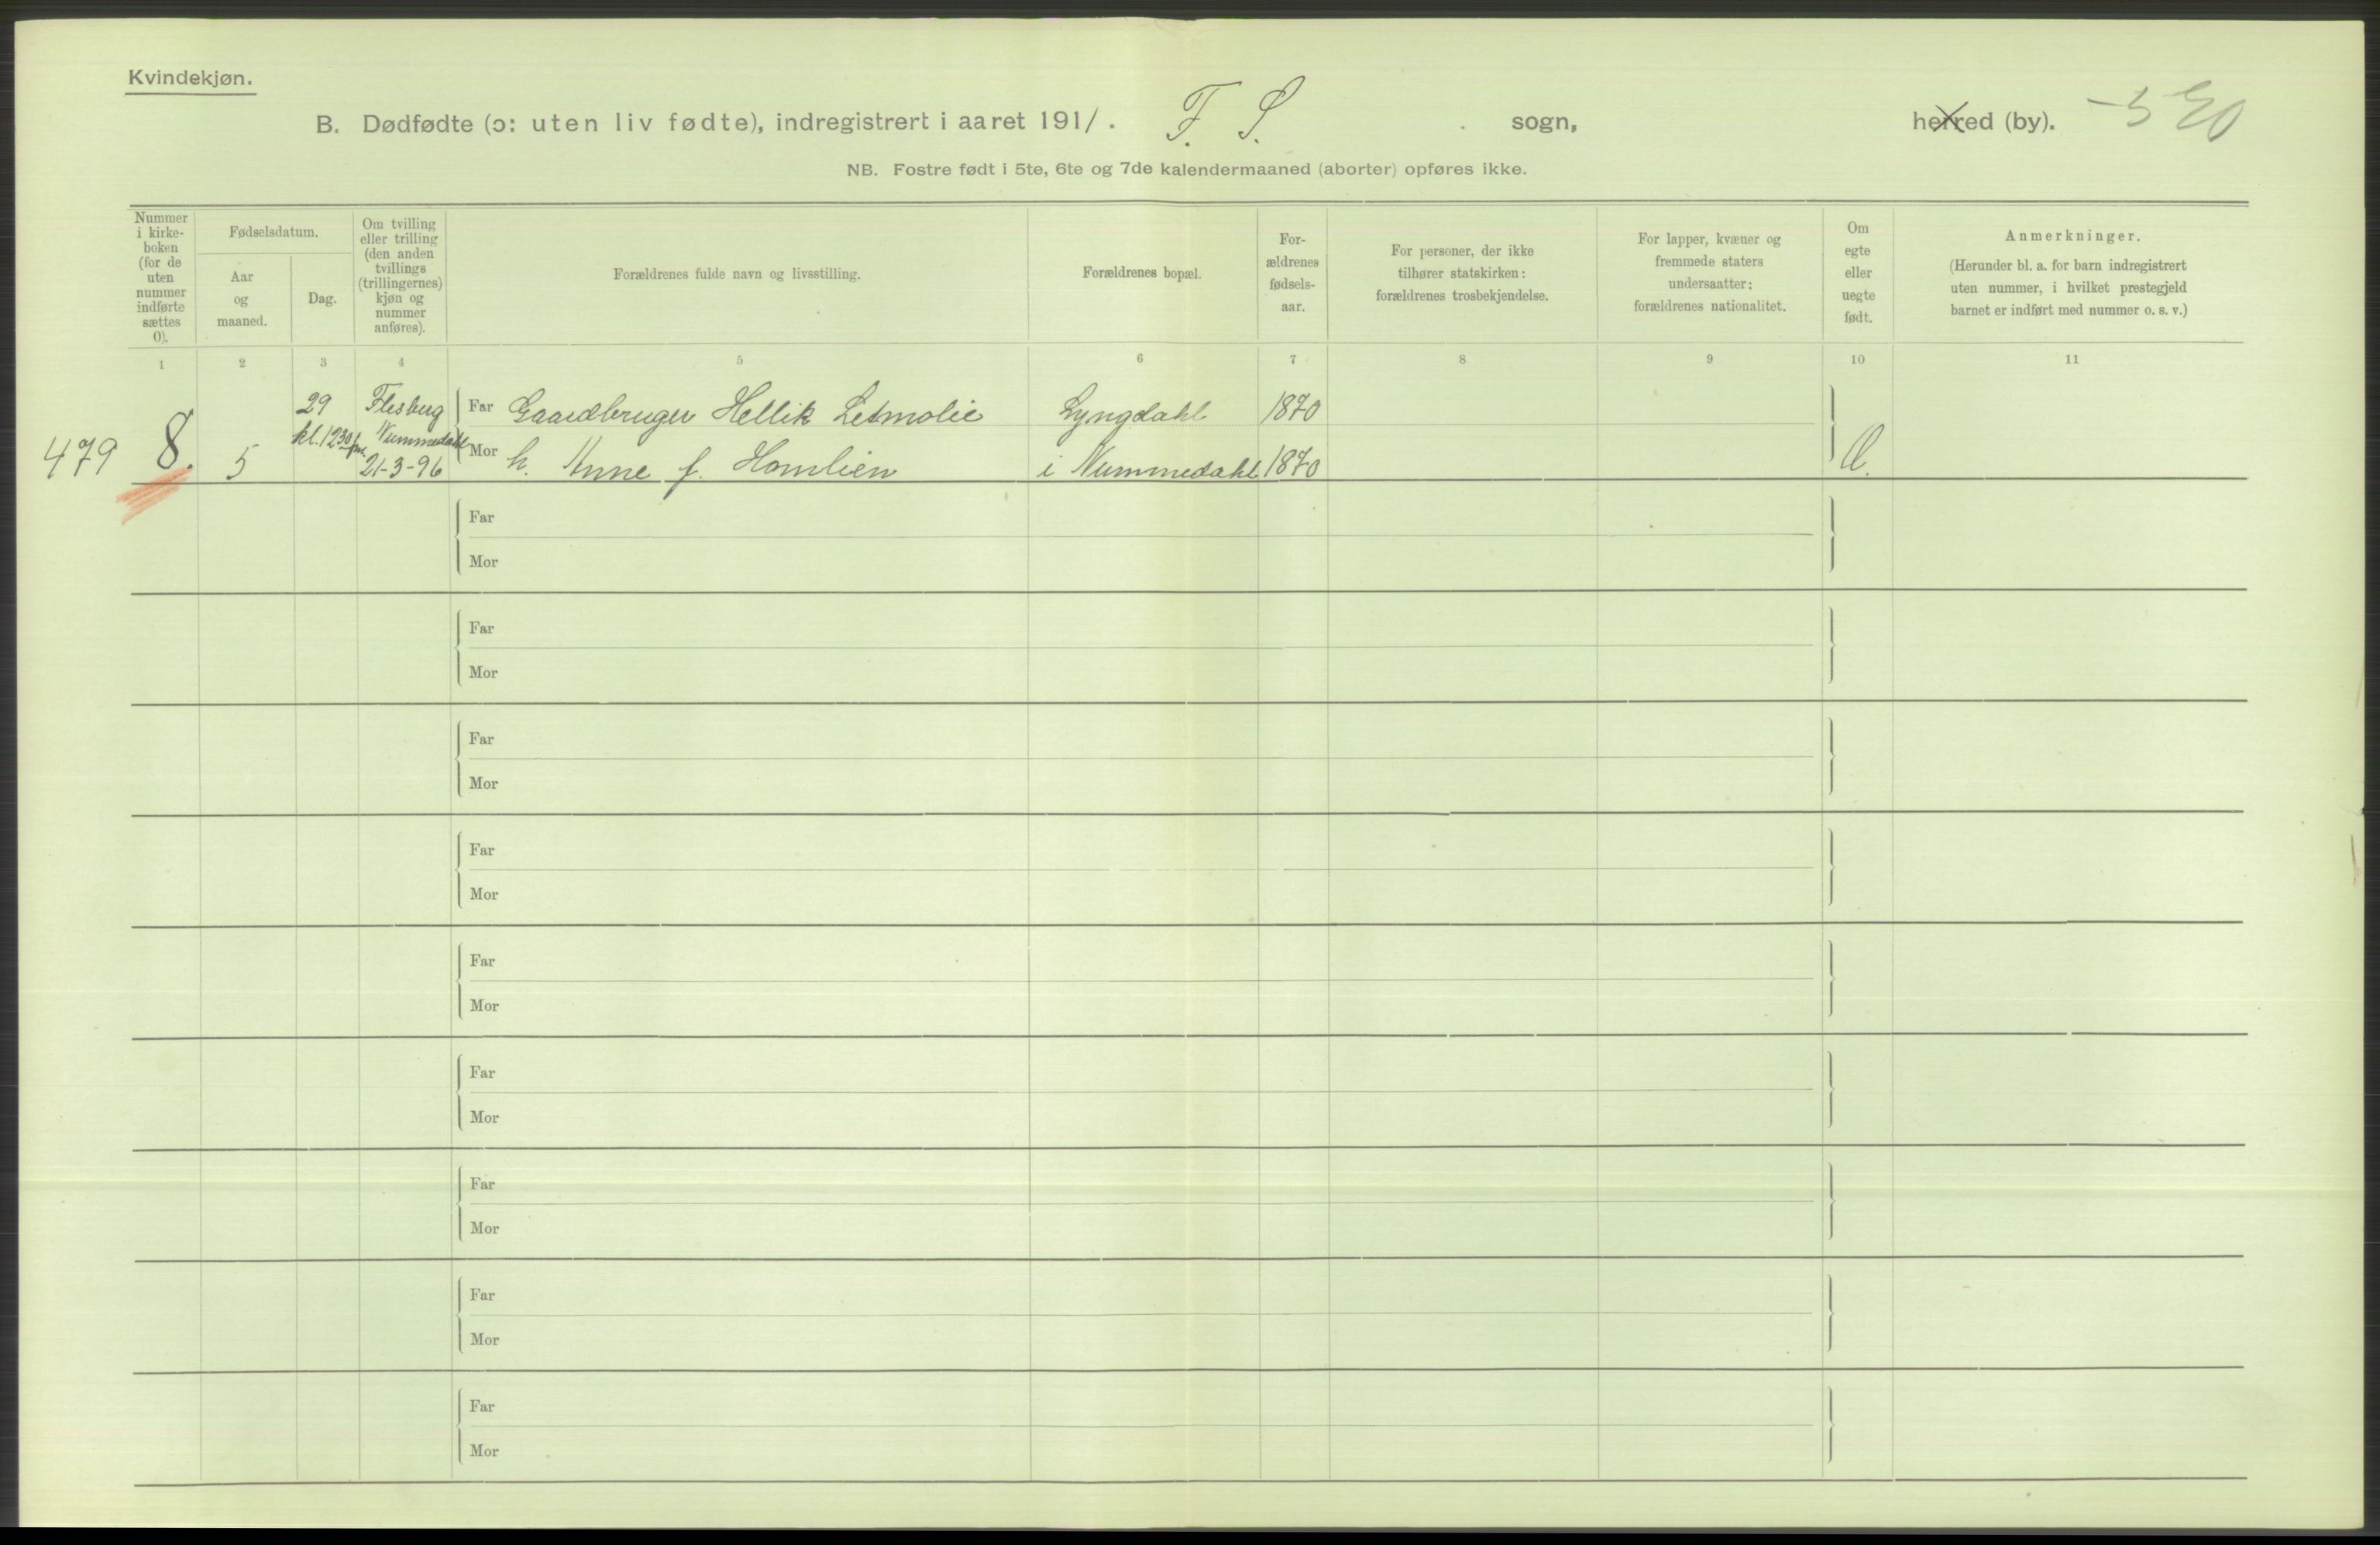 Kvindekjøn.
B. Dødfødte (ɔ: uten liv fødte), indregistrert i aaret 1911. F. S. sogn, herred (by).
NB. Fostre født i 5te, 6te og 7de kalendermaaned (aborter) opføres ikke.
Nummer
i kirke-
boken
(for de
uten
nummer
indførte
sættes
0).
Fødselsdatum.
Aar
og
maaned.
Dag.
Om tvilling
eller trilling
(den anden
tvillings
(trillingernes)
kjøn og
nummer
anføres).
Forældrenes fulde navn og livsstilling.
Forældrenes bopæl.
For-
ældrenes
fødsels-
aar.
For personer, der ikke
tilhører statskirken:
forældrenes trosbekjendelse.
For lapper, kvæner og
fremmede staters
undersaatter:
forældrenes nationalitet.
Om
egte
eller
uegte
født.
Anmerkninger.
(Herunder bl. a. for barn indregistrert
uten nummer, i hvilket prestegjeld
barnet er indført med nummer o. s. v.)
1 2 3 4 5 6 7 8 9 10 11
479 8. 5
29
kl. 12 30 fm.
Flesberg
Nummedahl
21-3-96
Far Gaardbruger Hellik Letmolie Lyngdahl 1870
Mor h. Anne f. Homlien i Nummedahl 1870
Far
Mor
Far
Mor
Far
Mor
Far
Mor
Far
Mor
Far
Mor
Far
Mor
Far
Mor
Far
Mor